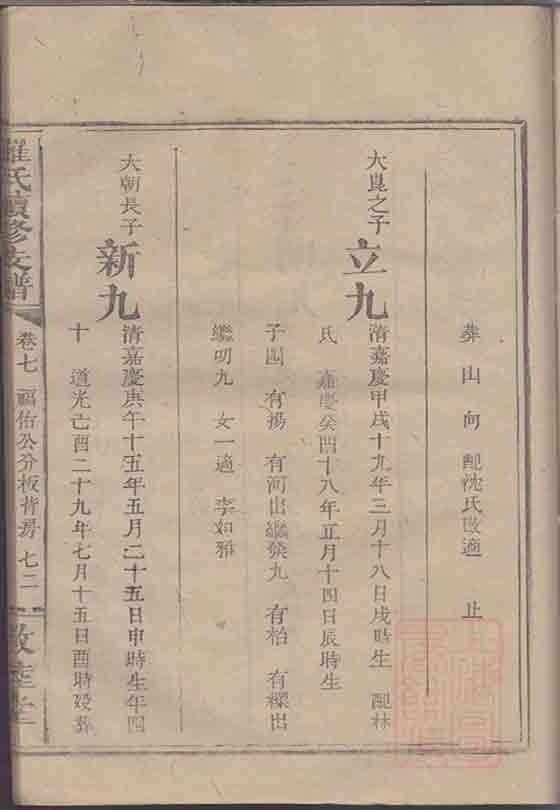 葬 山 向 配沈氏改適 止
大崑之子
立九
清嘉慶甲戌十九年三月十八日戌時生 配林
氏 嘉慶癸酉十八年正月十四日辰時生
子四 有揚 有河出繼癸九 有柏 有樑出
繼明九 女一適 李如雅
大朝長子
新九
清嘉慶庚午十五年五月二十五日申時生年四
十 道光己酉二十九年七月十五日酉時歿葬
羅氏續修支譜
卷七 福佑公分板背房 七二
敦